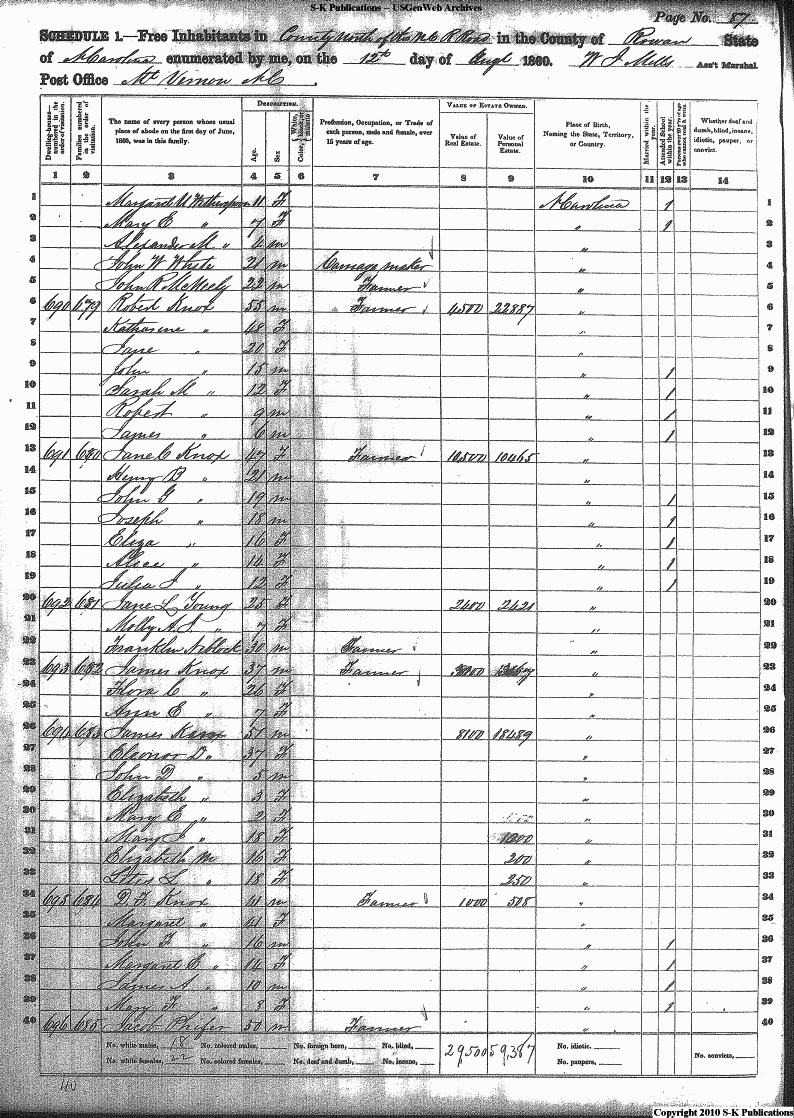 S-K Publications – USGenWeb Archives
Page No. 87
SCHEDULE 1.—Free Inhabitants in County North of the N C R Road in the County of Rowan State
of N Carolina enumerated by me, on the 12th day of Augt 1860. W J Mills Ass't Marshal.
Post Office Mt Vernon N C.
DESCRIPTION. VALUE OF ESTATE OWNED.
Dwelling-houses—numbered in the order of visitation. Families numbered in the order of visitation. The name of every person whose usual place of abode on the first day of June, 1860, was in this family. Age. Sex Color, White, black, or mulatto Profession, Occupation, or Trade of each person, male and female, over 15 years of age. Value of Real Estate. Value of Personal Estate. Place of Birth, Naming the State, Territory, or Country. Married within the year. Attended School within the year. Persons over 20 y'rs of age who cannot read & write. Whether deaf and dumb, blind, insane, idiotic, pauper, or convict.
1 2 3 4 5 6 7 8 9 10 11 12 13 14
1 Margaret 11 F N Carolina 1 1
2 Mary E " 7 F " 1 2
3 Alexander M " 4 m " 3
4 John W White 21 m Carriage maker " 4
5 John R McNeely 22 m Farmer " 5
6 690 679 Robert Knox 55 m Farmer 4500 22887 " 6
7 Katharine " 48 F " 7
8 Jane " 20 F " 8
9 John " 15 m " 1 9
10 Sarah M " 12 F " 1 10
11 Robert " 9 m " 1 11
12 James " 6 m " 1 12
13 691 680 Jane C Knox 47 F Farmer 10500 10465 " 13
14 Henry B " 21 m " 14
15 John G " 19 m " 1 15
16 Joseph " 18 m " 1 16
17 Eliza " 16 F " 1 17
18 Alice " 14 F " 1 18
19 Julia J " 12 F " 1 19
20 692 681 Jane L Young 25 F 2400 2421 " 20
21 Molly A. J. " 7 F " 21
22 Franklin Niblock 30 m Farmer " 22
23 693 682 James Knox 37 m Farmer " 23
24 Flora C " 26 F " 24
25 Ann E " 7 F " 25
26 694 683 James Knox 51 m 8100 18489 " 26
27 Eleonor D " 37 F " 27
28 John D " 5 m " 28
29 Elizabeth " 3 F " 29
30 Mary E " 2 F " 30
31 Mary J " 18 F 1200 " 31
32 Elizabeth M 16 F 200 " 32
33 L " 18 F 250 33
34 695 684 D. F. Knox 41 m Farmer 1000 508 " 34
35 Margaret " 41 F 35
36 John F " 16 m " 1 36
37 Margaret E " 14 F " 1 37
38 James A " 10 m " 1 38
39 Mary F " 8 F " 1 39
40 696 685 Jacob Phifer 50 m Farmer " 40
No. white males, 18 No. colored males, No. foreign born, No. blind, 29,500 59,387 No. idiotic. No. convicts,
No. white females, 22 No. colored females, No. deaf and dumb, No. insane, No. paupers,
40
Copyright 2010 S-K Publications